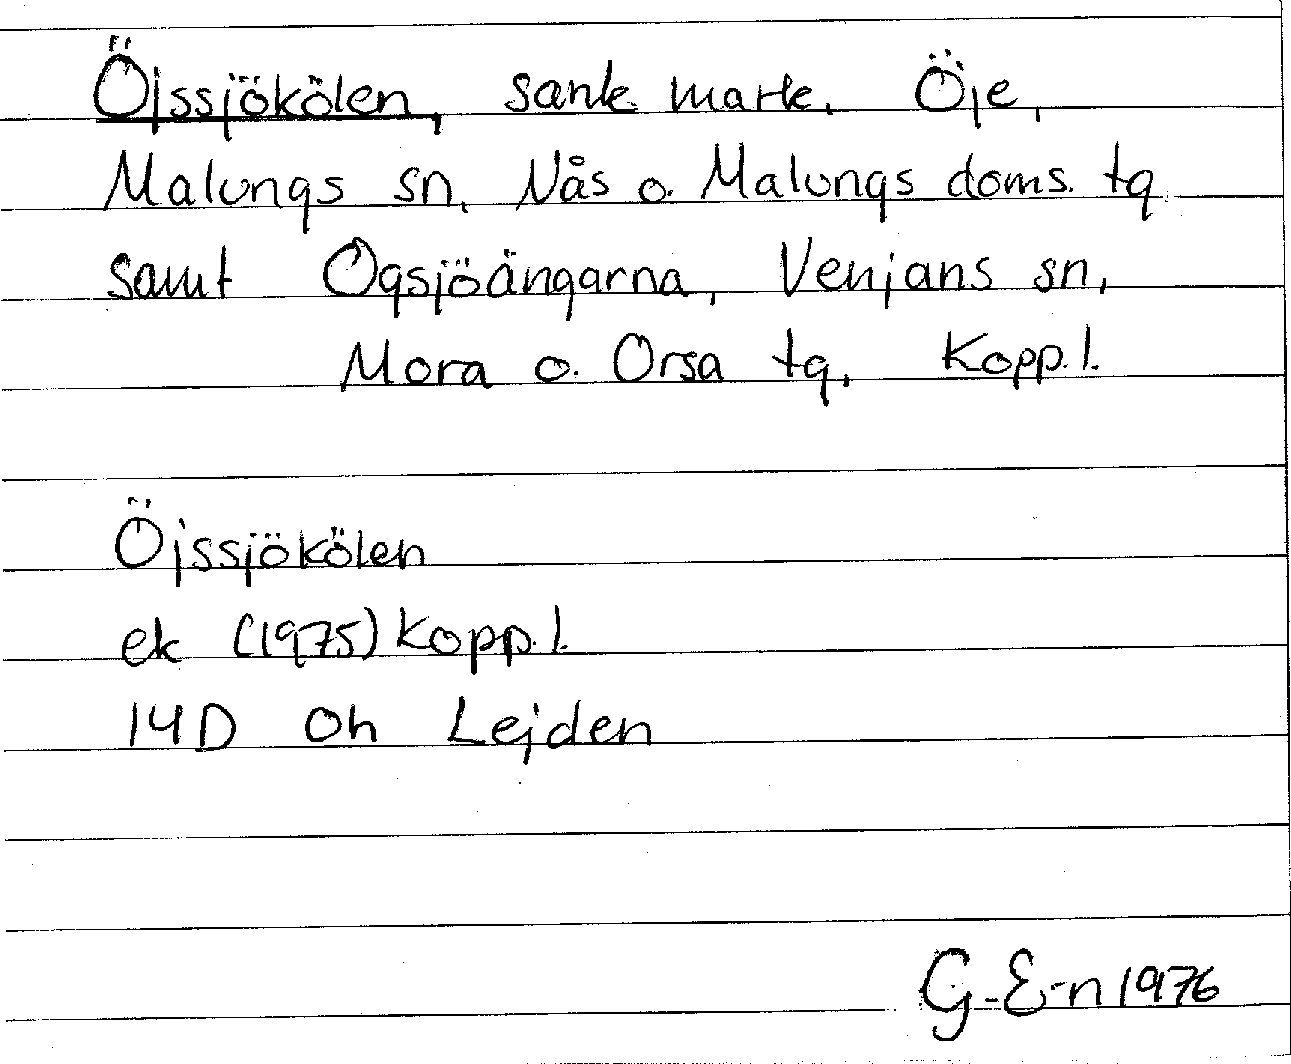 Öjssjökölen, sank mark. Öje,
Malungs sn, Nås o. Malungs doms. tg
samt Ogsjöängarna, Venjans sn,
Mora o. Orsa tg, Kopp. l.
Öjssjökölen
ek (1975) Kopp. l.
14D 0h Lejden
G. E-n 1976